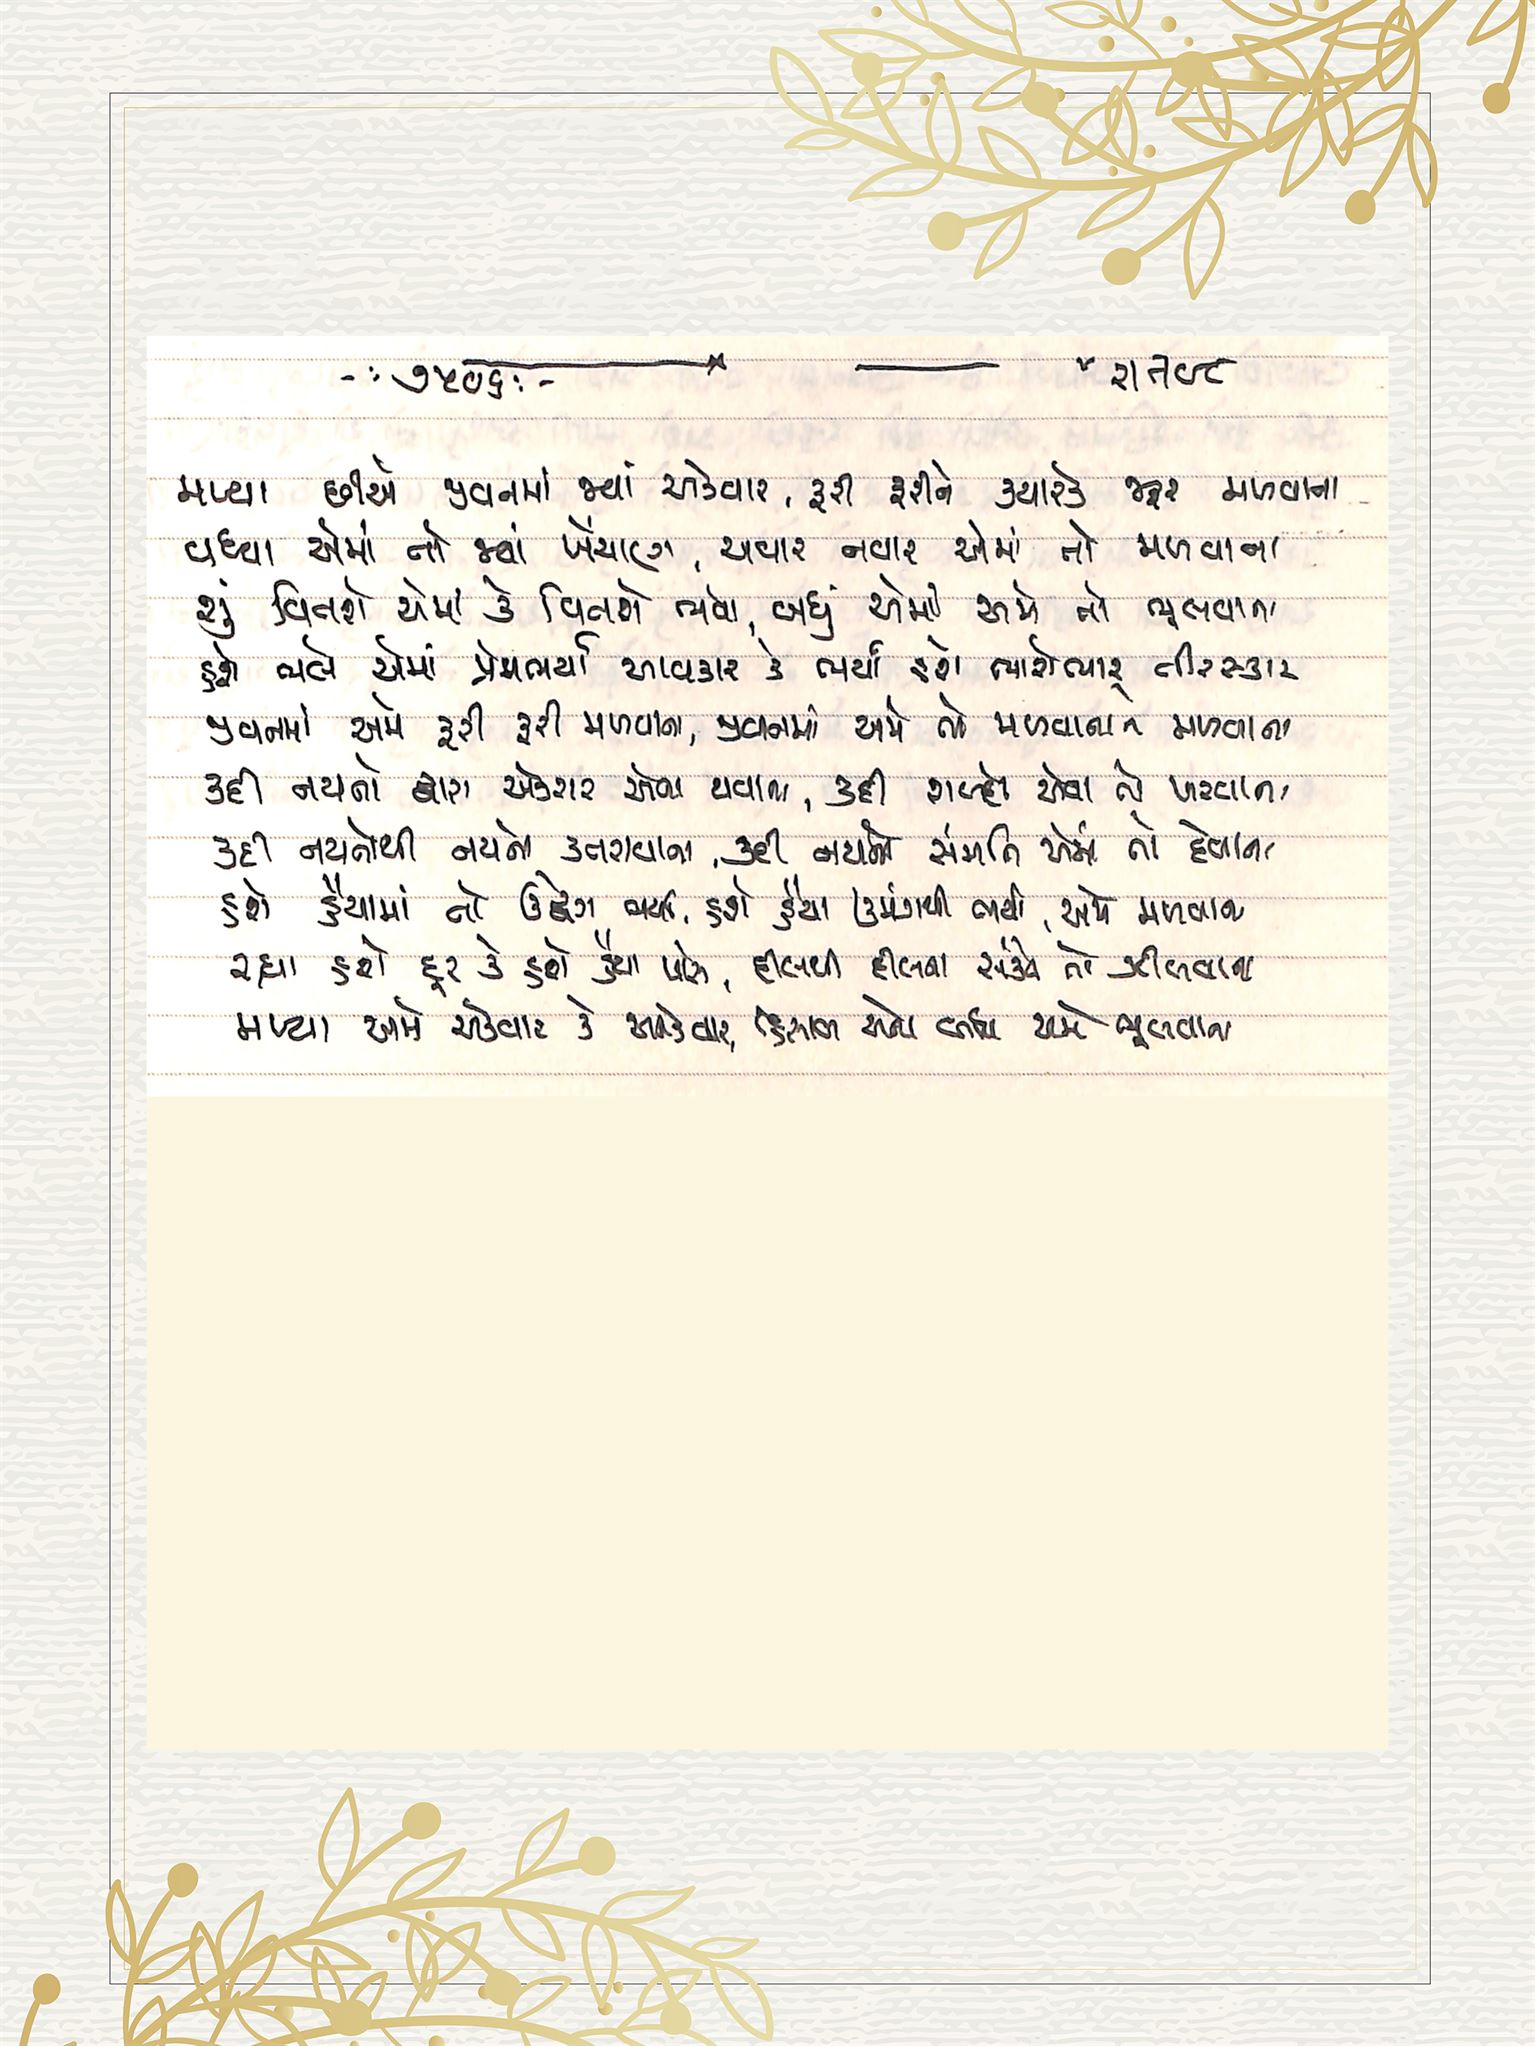 -: ૭૫૦૬ :-
મળ્યા છીએ જીવનમાં જ્યાં એકવાર, ફરી ફરીને ક્યારેક જરૂર મળવાના
વધ્યા એમાં તો જ્યાં ખેંચાણ, અવાર નવાર એમાં તો મળવાના
શું વિતશે એમાં કે વિતશે ભલે, બધું એમાં અમે તો ભૂલવાના
હશે ભલે એમાં પ્રેમભર્યા આવકાર કે ભર્યો હશે ભારોભાર તીરસ્કાર
જીવનમાં અમે ફરી ફરી મળવાના, જીવનમાં અમે તો મળવાના ને મળવાના
કદી નયનો દ્વારા એકરાર એવા થવાના, કદી શબ્દો એવા તો ખરવાના
કદી નયનોથી નયનો કતરાવાના, કદી નયનો સંમતિ એમાં તો દેવાના
હશે હૈયામાં તો ઉદ્વેગ ભર્યા, હશે હૈયા ઉમંગથી ભર્યા, અમે મળવાના
રહ્યા હશે દૂર કે હશે હૈયા પાસે, દીલથી દીલના સંકેત તો ઝીલવાના
મળ્યા અમે એકવાર કે અનેકવાર, હિસાબ એના બધા અમે ભૂલવાના